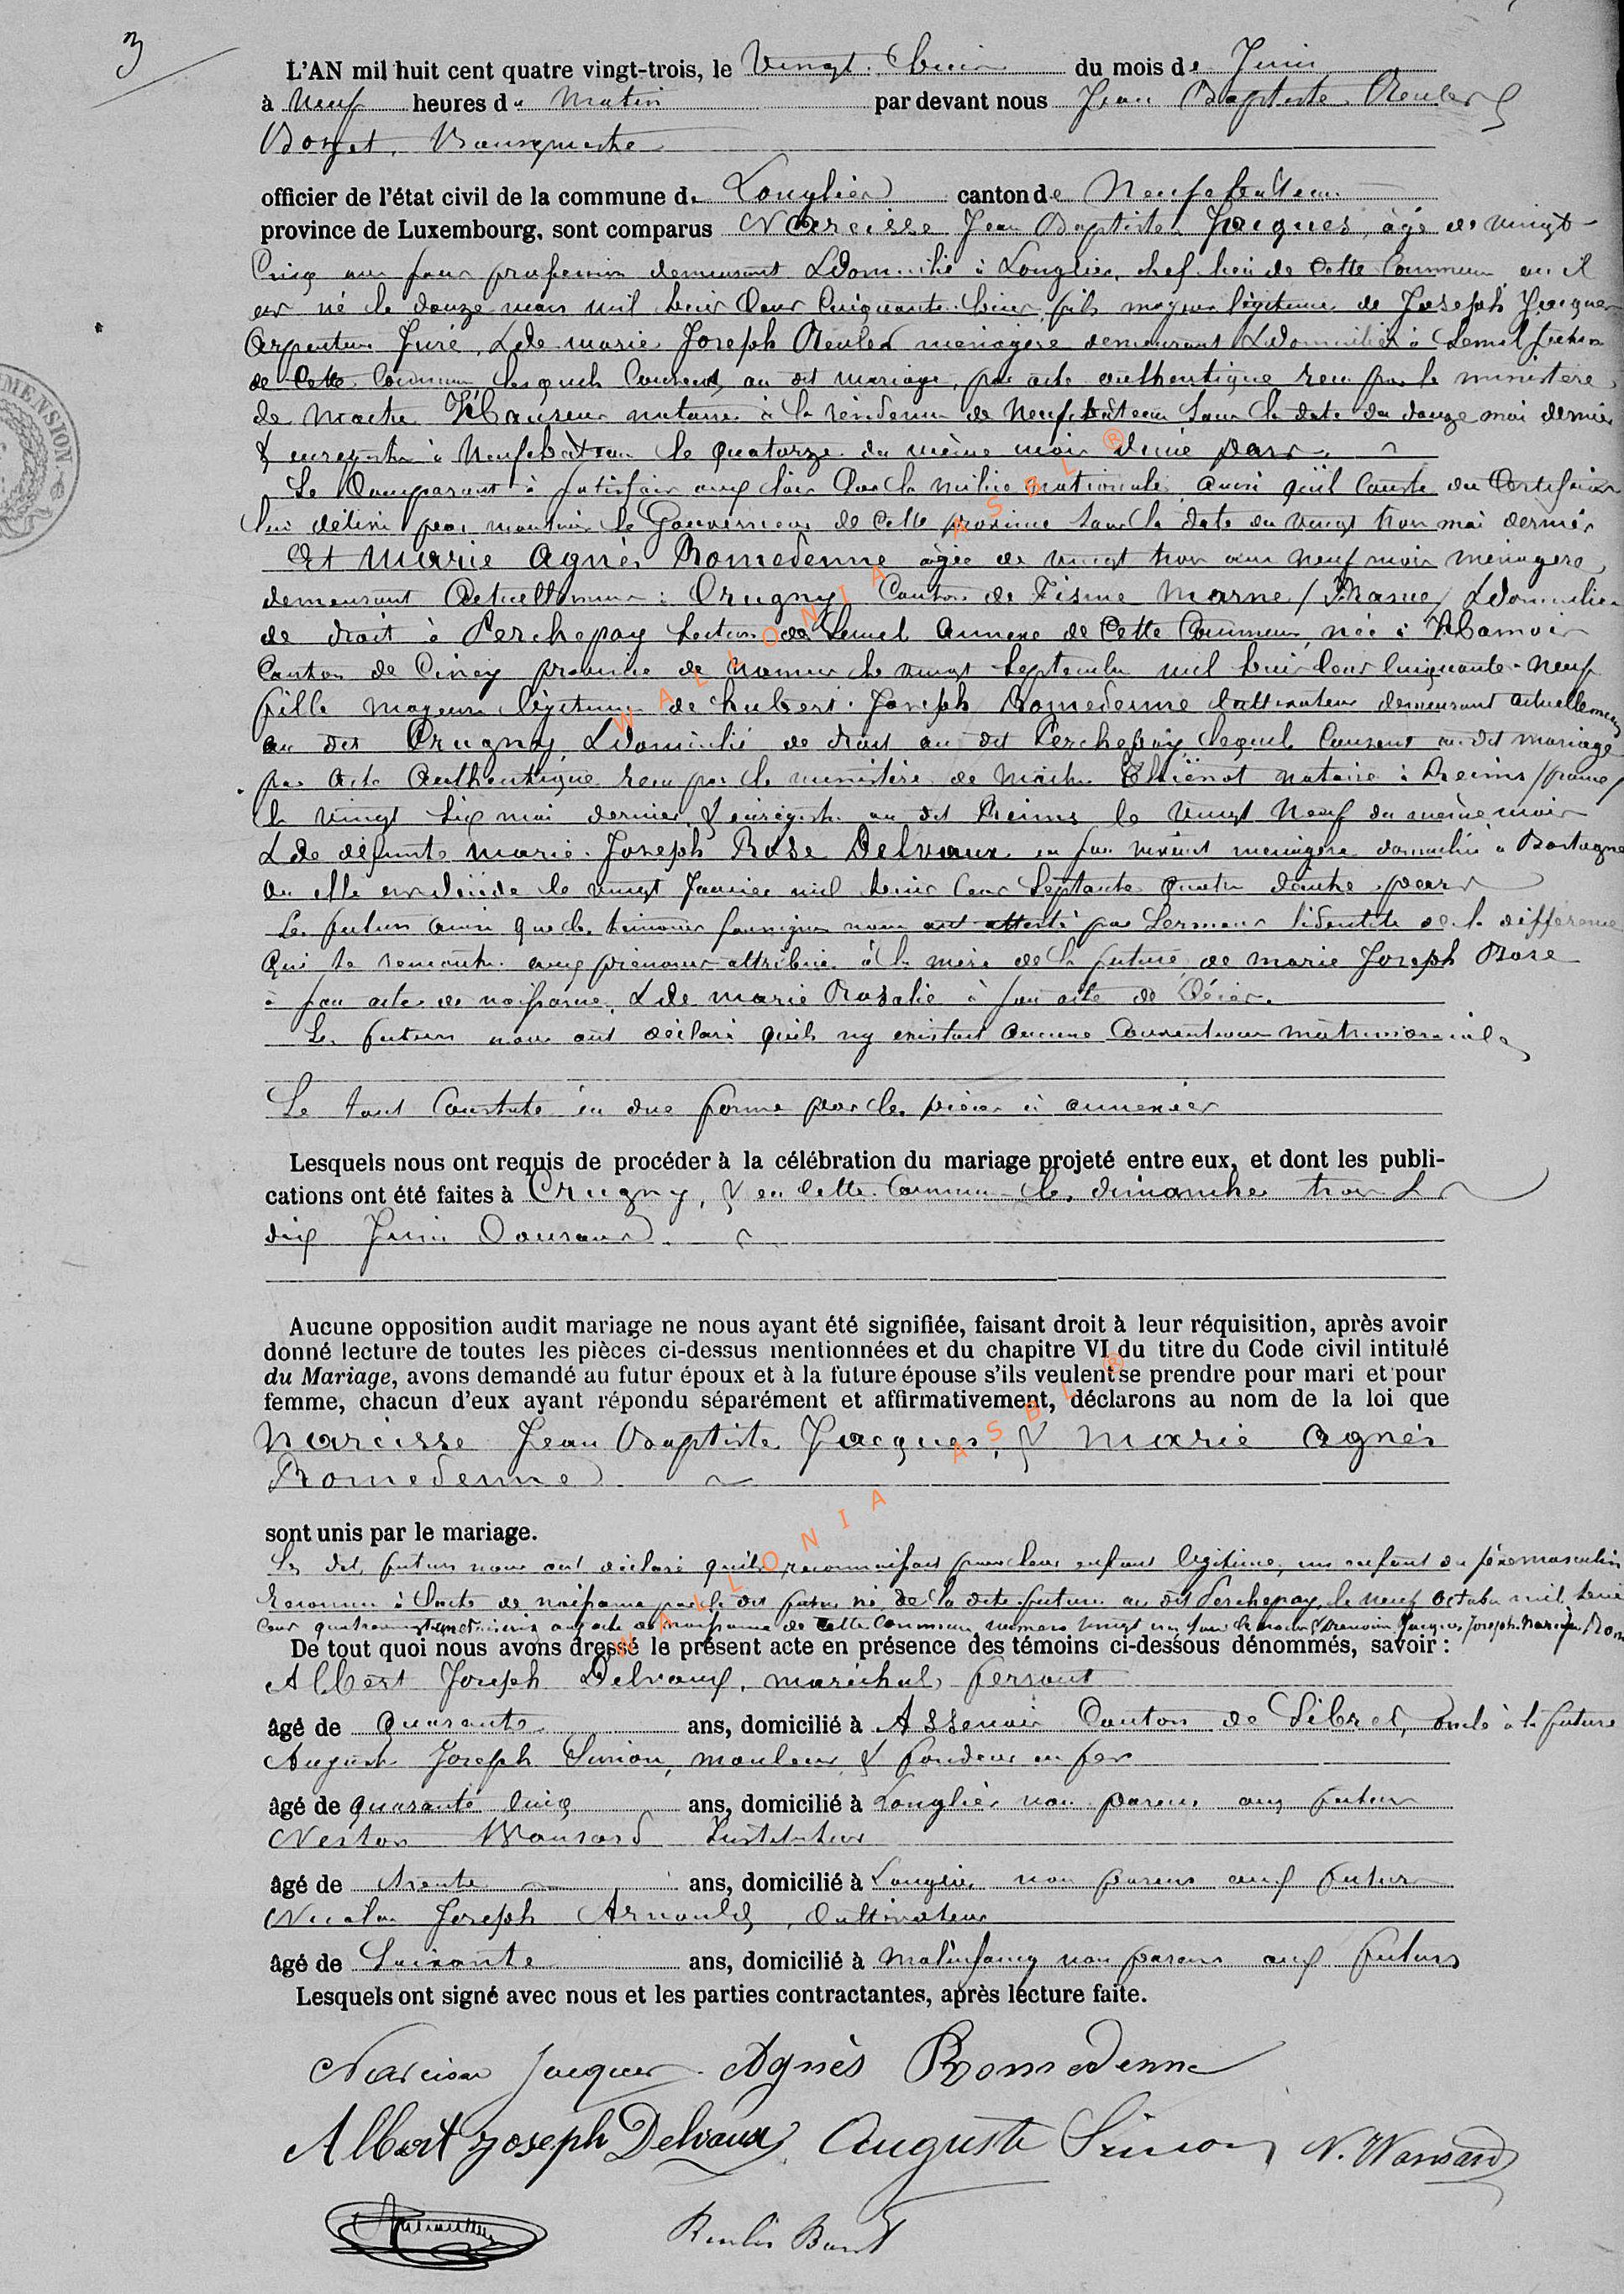 3
L'AN mil huit cent quatre vingt-trois, le Vingt huit du mois de Juin
à Neuf heures du Matin par devant nous Jean Baptiste Reuler
Borzet, Bourgmestre
officier de l'état civil de la commune de Longlier canton de Neufchâteau
province de Luxembourg, sont comparus Narcisse Jean Baptiste Jacques, âgé de vingt
Cinq ans sans profession demeurant & domicilié à Longlier, chef lieu de Cette Commune, où il
est né le douze mars mil huit Cent Cinquante huit, fils majeur légitime de Joseph Jacques
Arpenteur Juré, & de marie Joseph Reuler ménagère demeurant & domiciliés à Lemel section
de Cette Commune lesquels Consent au dit mariage, par acte authentique reçu par le ministère
de maître notaire à la résidence de Neufchâteau sous la date du douze mai dernier
& enregistré à Neufchâteau le quatorze du même mois
Le Comparant à satisfait aux lois sur la milice nationale, ainsi qu'il Conste du Certificat
lui délivré par monsieur le Gouverneur de Cette province sous la date du vingt trois mai dernier
Et Marie Agnès Romedenne âgée de vingt trois ans neuf mois ménagère,
demeurant Actuellement à Crugny Canton de Fisme Marne / & domiciliée
de droit à Perchepay section de Lemel Annexe de Cette Commune, née à
Canton de Ciney province de Namur le vingt Septembre mil huit Cent Cinquante-Neuf
fille majeure légitime de hubert Joseph Romedenne Cultivateur demeurant actuellement
au dit Crugny & domicilié de droit au dit Perchepay, lequel Consent au dit mariage
par acte Authentique reçu par le ministère de maître Thiénot notaire à Reims / france /
le vingt Six mai dernier, & enregistré au dit Reims le Vingt Neuf du même mois
& de défunte Marie Joseph Rose Delvaux en son vivant ménagère domiciliée à Bastogne
où elle est décédée le vingt Janvier mil huit Cent Septante Quatre d'autre part
Les futurs ainsi que les témoins soussignés nous ont attesté par Serment l'identité de la différence
Qui se remontre aux prénoms attribués à la mère de la future, de marie Joseph Rose
à son acte de naissance, & de marie Rosalie à son acte de décès.
Les futurs nous ont déclaré qu'ils n'y existait aucune Convention matrimoniale
Le tout Constaté en due forme par les pièces ci annexées
Lesquels nous ont requis de procéder à la célébration du mariage projeté entre eux, et dont les publi-
cations ont été faites à Crugny, & en Cette Commune les dimanches trois &
dix Juin Courant
Aucune opposition audit mariage ne nous ayant été signifiée, faisant droit à leur réquisition, après avoir
donné lecture de toutes les pièces ci-dessus mentionnées et du chapitre VI du titre du Code civil intitulé
du Mariage, avons demandé au futur époux et à la future épouse s'ils veulent se prendre pour mari et pour
femme, chacun d'eux ayant répondu séparément et affirmativement, déclarons au nom de la loi que
Narcisse Jean Baptiste Jacques, & Marie Agnès
Romedenne
sont unis par le mariage.
Les dits futurs nous ont déclaré qu'ils reconnaissent pour leur enfant légitime, un enfant du sexe masculin
Reconnu à l'acte de naissance par le dit futur né de la dite future au dit Perchepay, le neuf Octobre mil huit
Cent quatrevingt un aux actes de naissance de Cette Commune numéro Vingt un
De tout quoi nous avons dressé le présent acte en présence des témoins ci-dessous dénommés, savoir :
Albert Joseph Delvaux, maréchal ferrant
âgé de Quarante ans, domicilié à Assenois Canton de Sibret, oncle à la future
Auguste Joseph Simon, mouleur & fondeur en fer
âgé de quarante Cinq ans, domicilié à Longlier non parent aux futurs
Nestor Wansard Instituteur
âgé de trente ans, domicilié à Longlier non parent aux futurs
Nicolas Joseph Arnould, Cultivateur
âgé de Soixante ans, domicilié à Molinfaing non parent aux futurs
Lesquels ont signé avec nous et les parties contractantes, après lecture faite.
Narcisse Jacques Agnès Romedenne
Albert Joseph Delvaux Auguste Simon N. Wansard
WALLONIA ASBL ®
WALLONIA ASBL ®